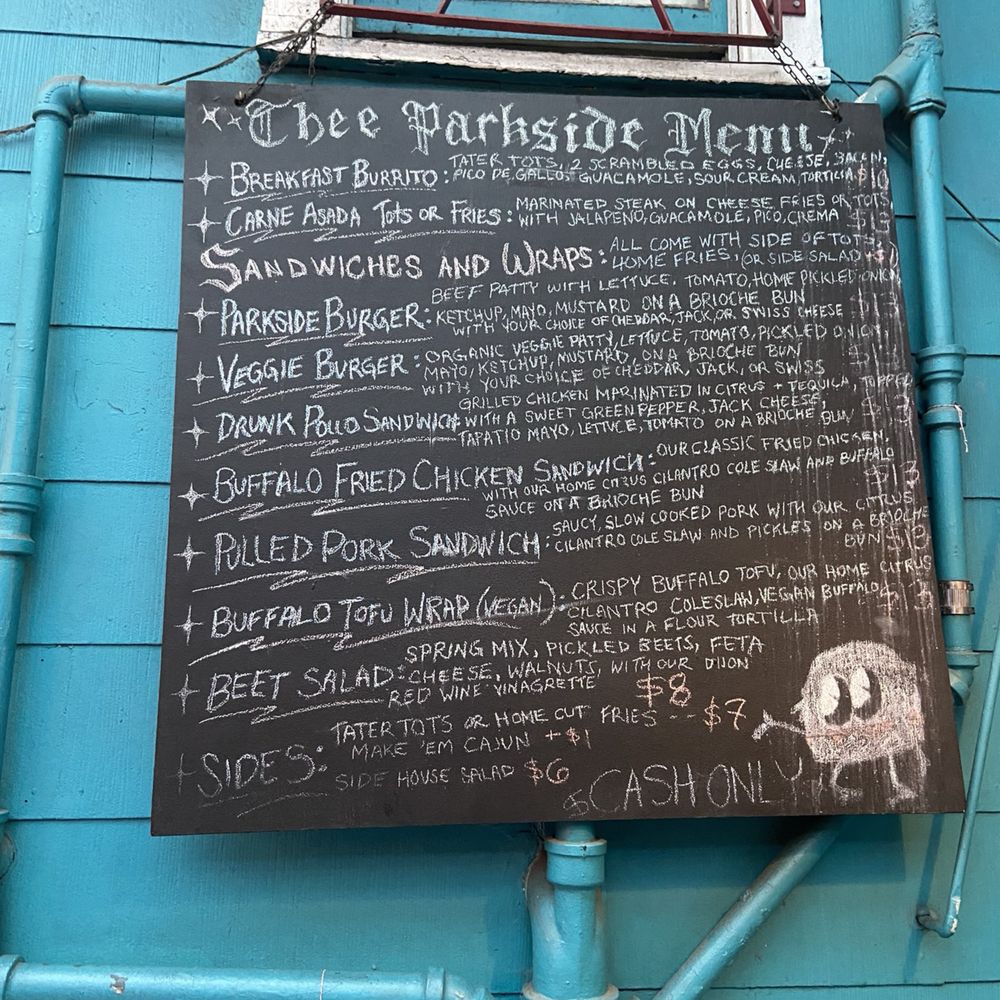 Thee Parkside Menu
BREAKFAST BURRITO: TATER TOTS, 2 SCRAMBLED EGGS, CHEESE, BACON,
PICO DE GALLO, GUACAMOLE, SOUR CREAM, TORTILLA $10
CARNE ASADA TOTS OR FRIES: MARINATED STEAK ON CHEESE FRIES OR TOTS
WITH JALAPENO, GUACAMOLE, PICO, CREMA $13
SANDWICHES AND WRAPS: ALL COME WITH SIDE OF TOTS
HOME FRIES, (OR SIDE SALAD
PARKSIDE BURGER: BEEF PATTY WITH LETTUCE, TOMATO, HOME PICKLED ONION
KETCHUP, MAYO, MUSTARD ON A BRIOCHE BUN
WITH YOUR CHOICE OF CHEDDAR, JACK, OR SWISS CHEESE $13
VEGGIE BURGER: ORGANIC VEGGIE PATTY, LETTUCE, TOMATO, PICKLED ONION
MAYO, KETCHUP, MUSTARD, ON A BRIOCHE BUN
WITH YOUR CHOICE OF CHEDDAR, JACK, OR SWISS
DRUNK POLLO SANDWICH GRILLED CHICKEN MARINATED IN CITRUS + TEQUILA, TOPPED
WITH A SWEET GREEN PEPPER, JACK CHEESE,
TAPATIO MAYO, LETTUCE, TOMATO ON A BRIOCHE BUN $13
BUFFALO FRIED CHICKEN SANDWICH: OUR CLASSIC FRIED CHICKEN,
WITH OUR HOME CITRUS CILANTRO COLE SLAW AND BUFFALO
SAUCE ON A BRIOCHE BUN $13
PULLED PORK SANDWICH: SAUCY, SLOW COOKED PORK WITH OUR CITRUS
CILANTRO COLE SLAW AND PICKLES ON A BRIOCHE
BUN $13
BUFFALO TOFU WRAP (VEGAN): CRISPY BUFFALO TOFU, OUR HOME CITRUS
CILANTRO COLESLAW, VEGAN BUFFALO
SAUCE IN A FLOUR TORTILLA $13
BEET SALAD: SPRING MIX, PICKLED BEETS, FETA
CHEESE, WALNUTS, WITH OUR DIJON
RED WINE VINAGRETTE $8
SIDES: TATER TOTS OR HOME CUT FRIES -- $7
MAKE 'EM CAJUN +$1
SIDE HOUSE SALAD $6
$CASH ONLY